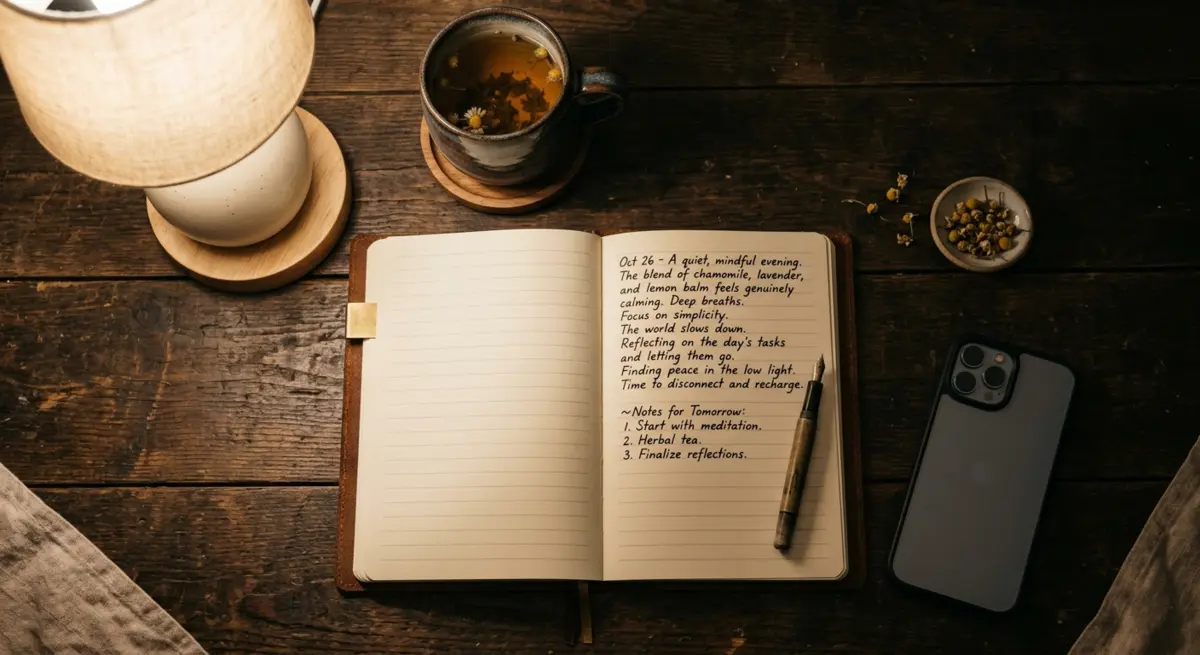 Oct 26 - A quiet, mindful evening.
The blend of chamomile, lavender,
and lemon balm feels genuinely
calming. Deep breaths.
Focus on simplicity.
The world slows down.
Reflecting on the day's tasks
and letting them go.
Finding peace in the low light.
Time to disconnect and recharge.
~Notes for Tomorrow:
1. Start with meditation.
2. Herbal tea.
3. Finalize reflections.